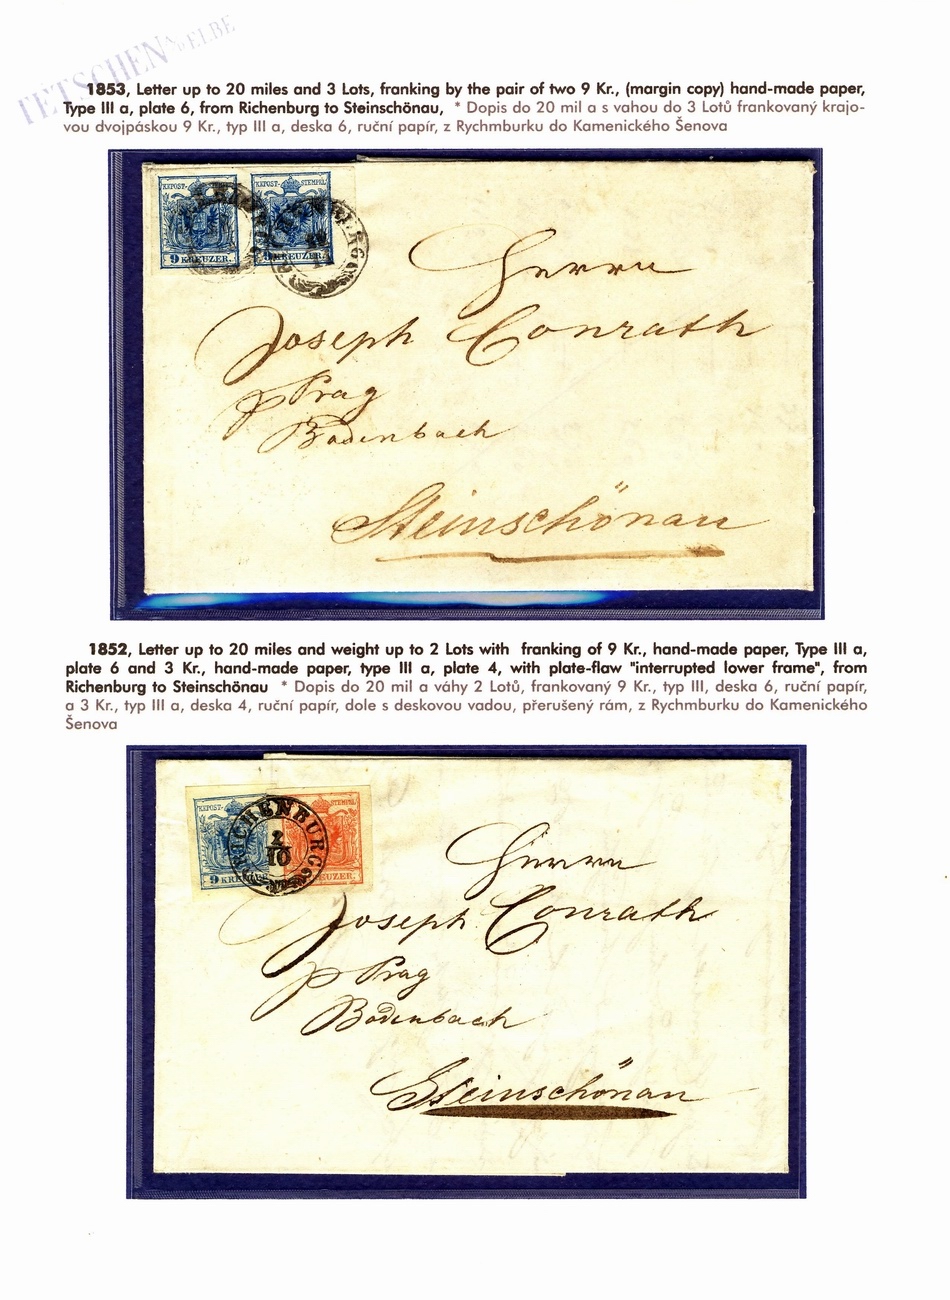 TETSCHEN a/d ELBE
1853, Letter up to 20 miles and 3 Lots, franking by the pair of two 9 Kr., (margin copy) hand-made paper,
Type III a, plate 6, from Richenburg to Steinschönau, * Dopis do 20 mil a s vahou do 3 Lotů frankovaný krajo-
vou dvojpáskou 9 Kr., typ III a, deska 6, ruční papír, z Rychmburku do Kamenického Šenova
KKPOST-STEMPEL KKPOST-STEMPEL
9 KREUZER. 9 KREUZER.
Herrn
Joseph Conrath
p Prag
Bodenbach
Steinschönau
1852, Letter up to 20 miles and weight up to 2 Lots with franking of 9 Kr., hand-made paper, Type III a,
plate 6 and 3 Kr., hand-made paper, type III a, plate 4, with plate-flaw "interrupted lower frame", from
Richenburg to Steinschönau * Dopis do 20 mil a váhy 2 Lotů, frankovaný 9 Kr., typ III, deska 6, ruční papír,
a 3 Kr., typ III a, deska 4, ruční papír, dole s deskovou vadou, přerušený rám, z Rychmburku do Kamenického
Šenova
KKPOST- STEMPEL
RICHENBURG
2
10
9 KREUZER KREUZER.
Herrn
Joseph Conrath
p Prag
Bodenbach
Steinschönau